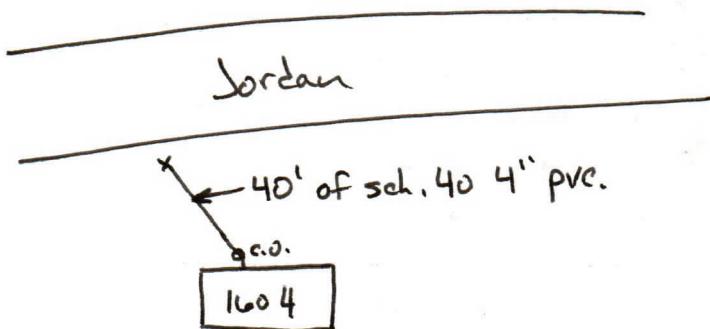 Jordan
40' of sch. 40 4" pvc.
c.o.
1604